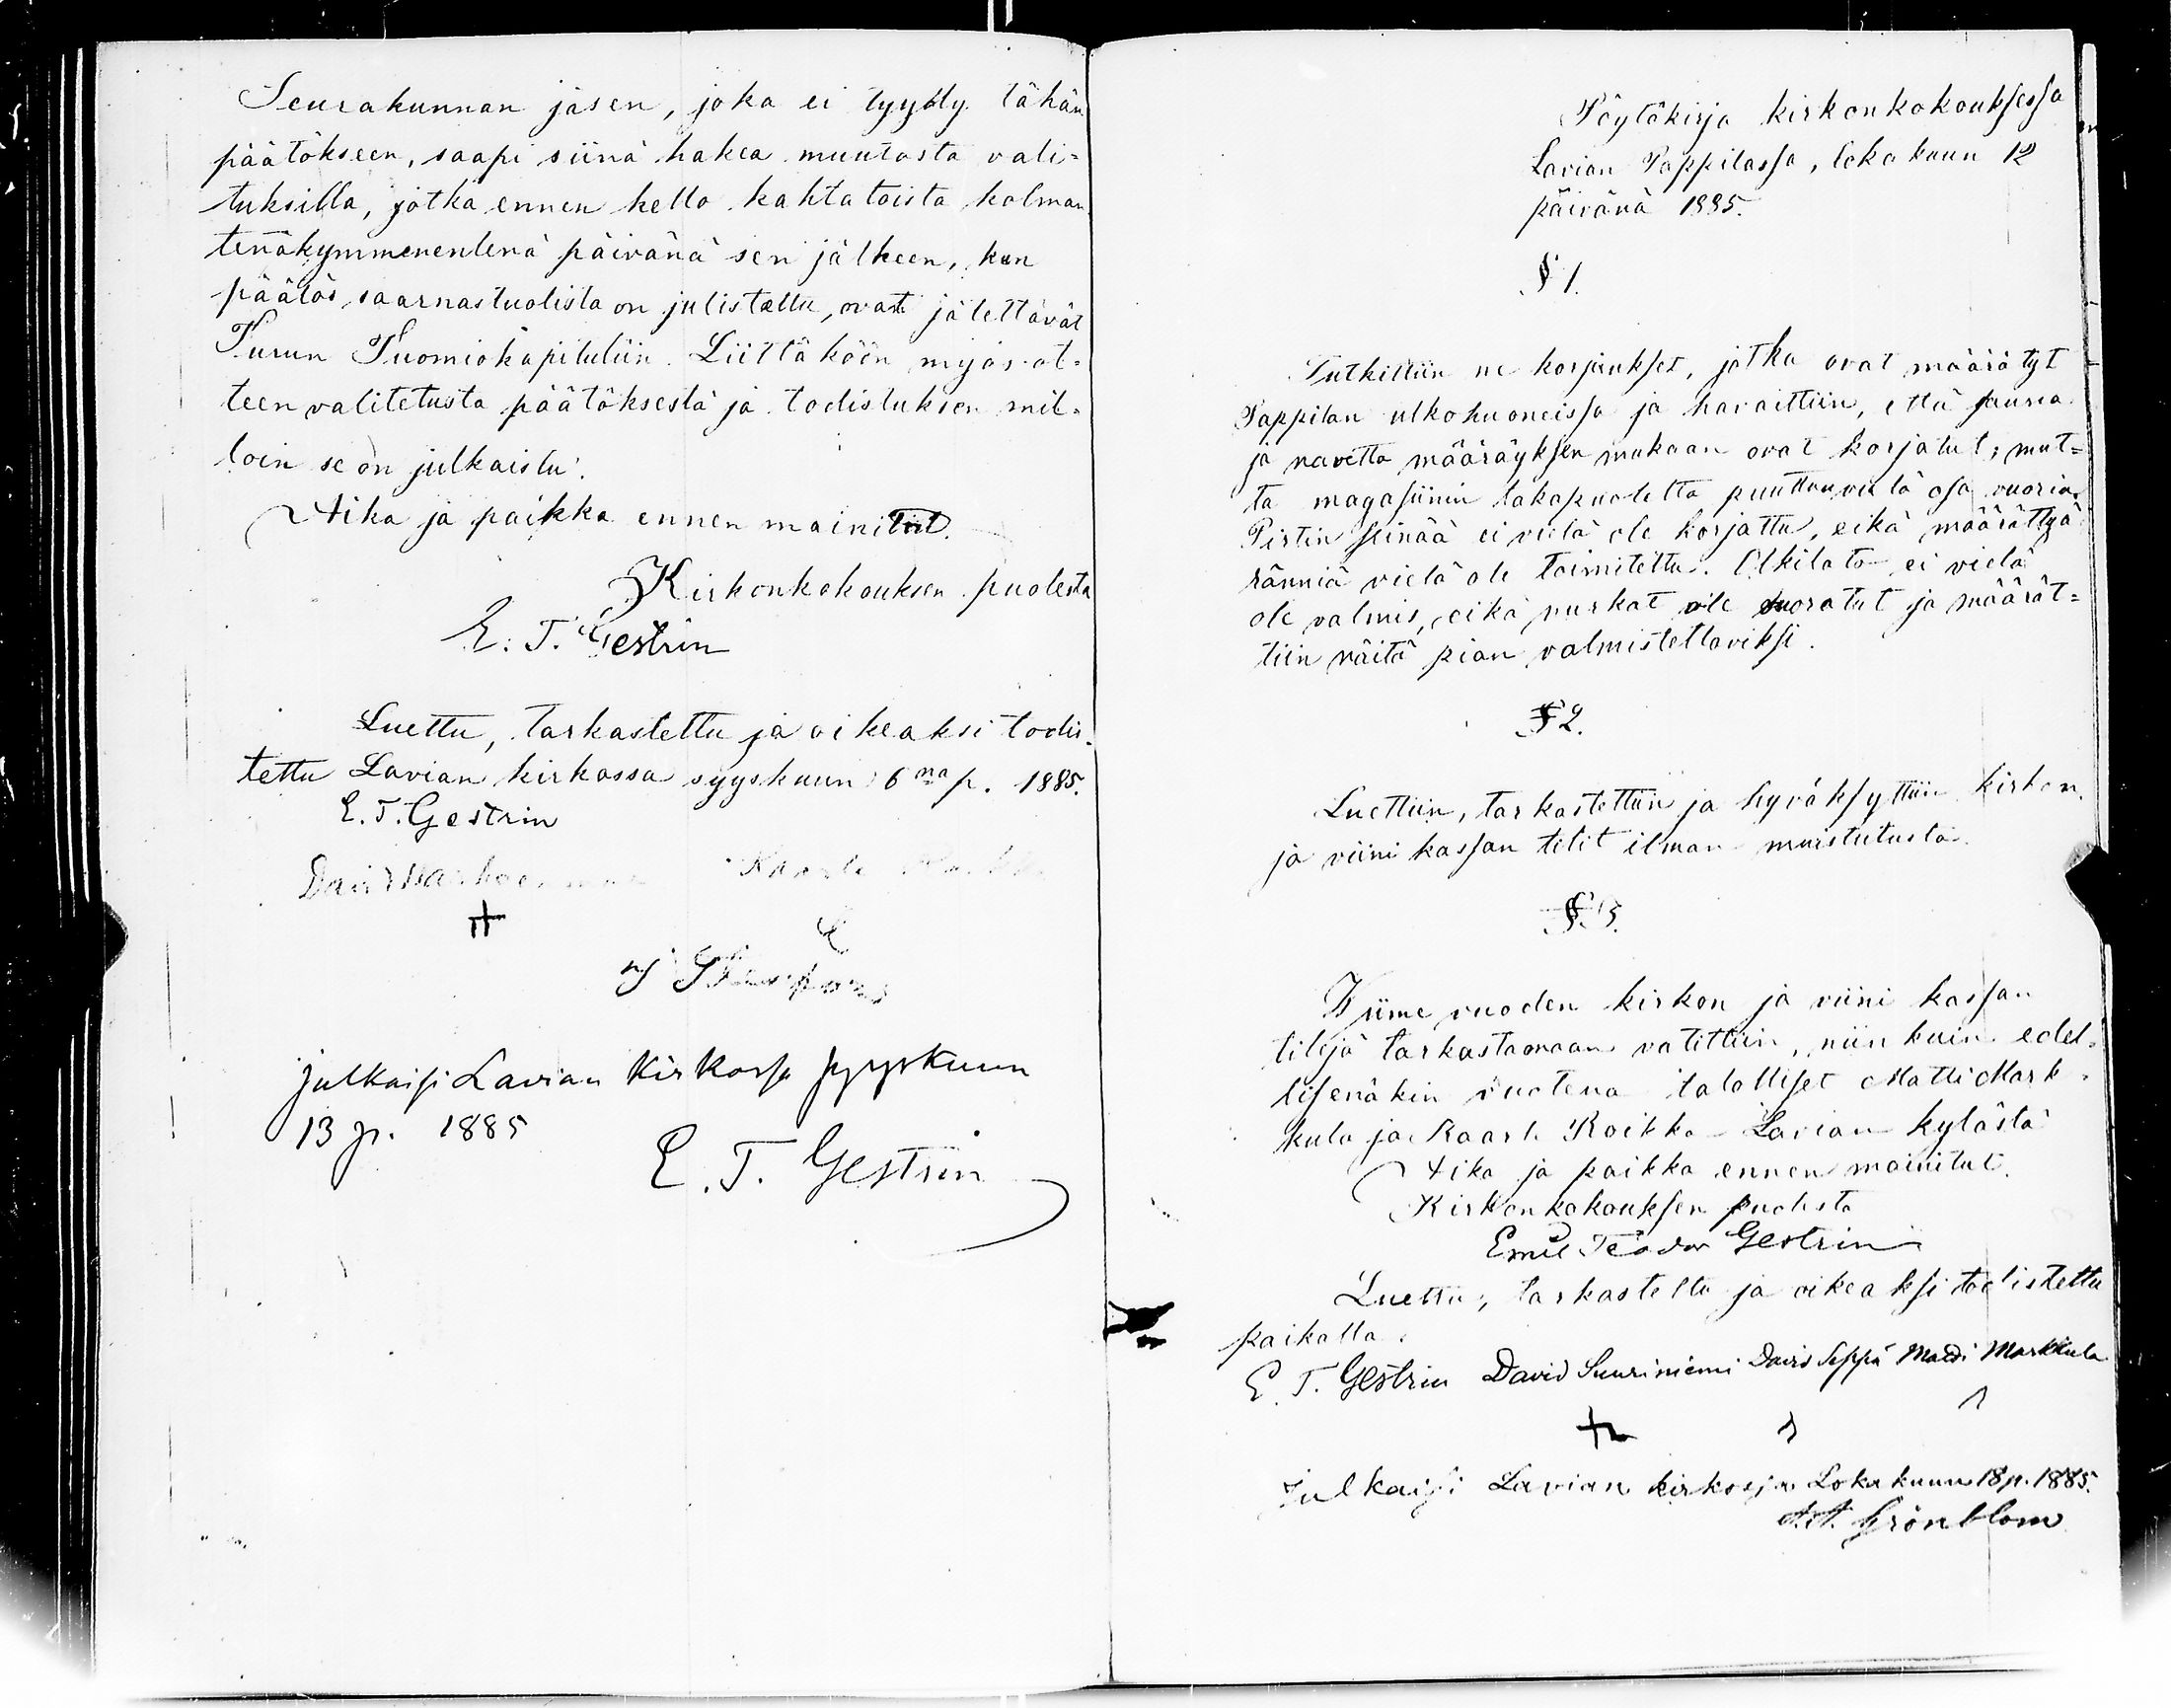 Seurakunnan jäsen, joka ei tyydy tähän
päätökseen, saapi siinä hakea muutosta vali=
tuksilla, jotka ennen kello kahtatoista kolman
tenäkymmenentenä päivänä sen jälkeen, kun
päätös saarnastuolista on julistettu, ovat jätettävät
Turun Tuomiokapituliin. Liittäköön myös ot=
teen valitetusta päätöksestä ja todistuksen mil=
loin se on julkaistu.
Aika ja paikka ennen mainitut.
Kirkonkokouksen puolesta
E. T. Gestrin
Luettu, tarkastettu ja oikeaksi todis=
tettu Lavian kirkossa syyskuun 6na p. 1885.
E. T. Gestrin
Julkaisi Lavian Kirkossa syyskuun
13 p. 1885
E. T. Gestrin
Pöytäkirja kirkonkokouksessa
Lavian Pappilassa, lokakuun 12
päivänä 1885.
§ 1.
Tutkittiin ne korjaukset, jotka ovat määrätyt
Pappilan ulkohuoneissa ja havaittiin, että sauna
ja navetta määräyksen mukaan ovat korjatut; mut=
ta magasiinin takapuolelta puuttuu vielä osa vuoria.
Pirtin seinää ei vielä ole korjattu, eikä määrättyä
ränniä vielä ole toimitettu. Olkilato ei vielä
ole valmis, eikä nurkat ole vuoratut ja määrät=
tiin näitä pian valmistettaviksi.
§ 2.
Luettiin, tarkastettiin ja hyväksyttiin kirkon
ja viini kassan tilit ilman muistutusta.
§ 3.
Viime vuoden kirkon ja viini kassan
tilejä tarkastamaan valittiin, niin kuin edel=
lisenäkin vuotena talolliset Matti Mark=
kula ja Kaarle Koikka Lavian kylästä
Aika ja paikka ennen mainitut.
Kirkonkokouksen puolesta
Emil Teodor Gestrin
Luettu, tarkastettu ja oikeaksi todistettu
paikalla.
E. T. Gestrin David Suuriniemi David Seppä Matti Markkula
Julkaisi Lavian kirkossa Lokakuun 18 p. 1885.
Grönblom